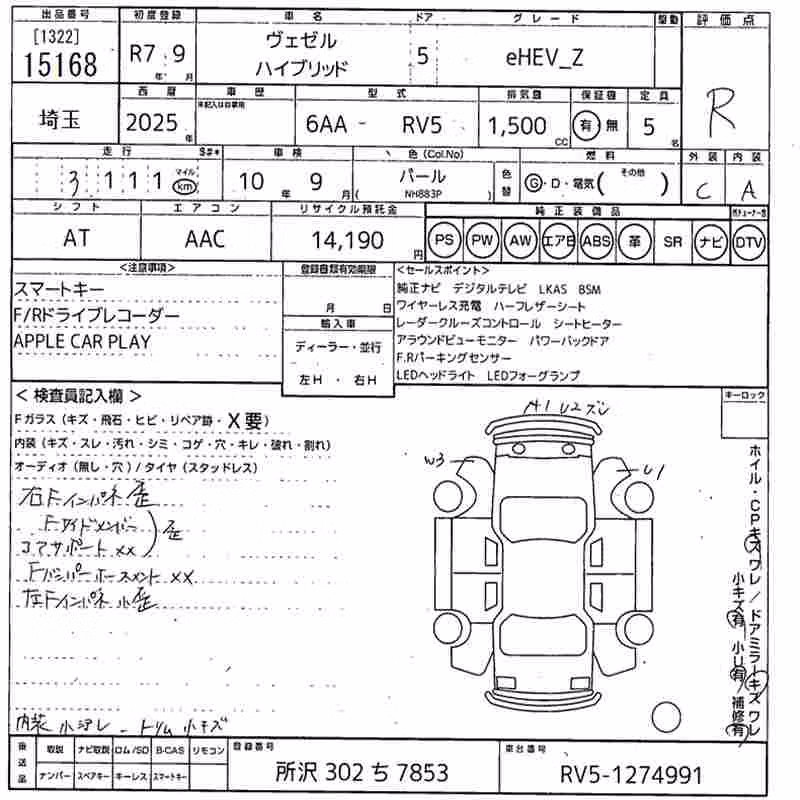 出品番号 初度登録 車名 ドア グレード 駆動 評価点
[1322]
15168 R7年 9月 ヴェゼル ハイブリッド 5 eHEV_Z R
埼玉 西暦 車歴 型式 排気量 保証書 定員
未記入は自家用
2025年 6AA - RV5 1,500CC 有 無 5名
走行 S#* 車検 色(Col.No) 色替 燃料 外装 内装
3 1 1 1 マイル km 10年 9月 パール (NH883P) G・D・電気(その他) C A
シフト エアコン リサイクル預託金 純正装備品
AT AAC 14,190円 PS PW AW エアB ABS 革 SR ナビ DTV
<注意事項> 登録自有効期限 <セールスポイント>
スマートキー
F/Rドライブレコーダー
APPLE CAR PLAY
月 日
輸入車
ディーラー・並行
左H ・ 右H
純正ナビ デジタルテレビ LKAS BSM
ワイヤーレス充電 ハーフレザーシート
レーダークルーズコントロール シートヒーター
アラウンドビューモニター パワーバックドア
F.Rパーキングセンサー
LEDヘッドライト LEDフォーグランプ
キーロック
<検査員記入欄>
Fガラス (キズ・飛石・ヒビ・リペア跡・X要)
内装 (キズ・スレ・汚れ・シミ・コゲ・穴・キレ・破れ・割れ)
オーディオ (無し・穴) / タイヤ (スタッドレス)
右Fインパネ歪
Fサイドメンバー
コアサポート XX
歪
Fバンパーホースメント XX
左Fインパネ小歪
内装 小汚レ - トリム小キズ
A1 U2ズレ
W3
U1
ホイル・CPキズワレ/ドアミラーキズワレ
小キズ有 小U有 補修有
後送品 取説 ナビ取説 ロム/SD B-CAS リモコン
ナンバー スペアキー キーレス スマートキー
登録番号
所沢 302 ち 7853
車台番号
RV5-1274991